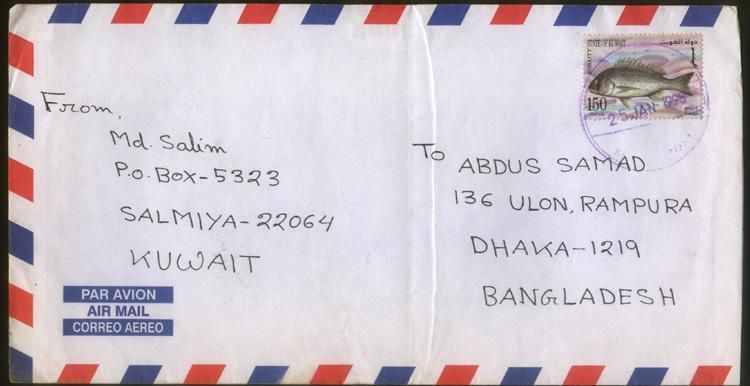 STATE OF KUWAIT
دولة الكويت
150
25 JAN 1998
From,
Md. Salim
P.O. BOX-5323
SALMIYA-22064
KUWAIT
To
ABDUS SAMAD
136 ULON, RAMPURA
DHAKA-1219
BANGLADESH
PAR AVION
AIR MAIL
CORREO AEREO